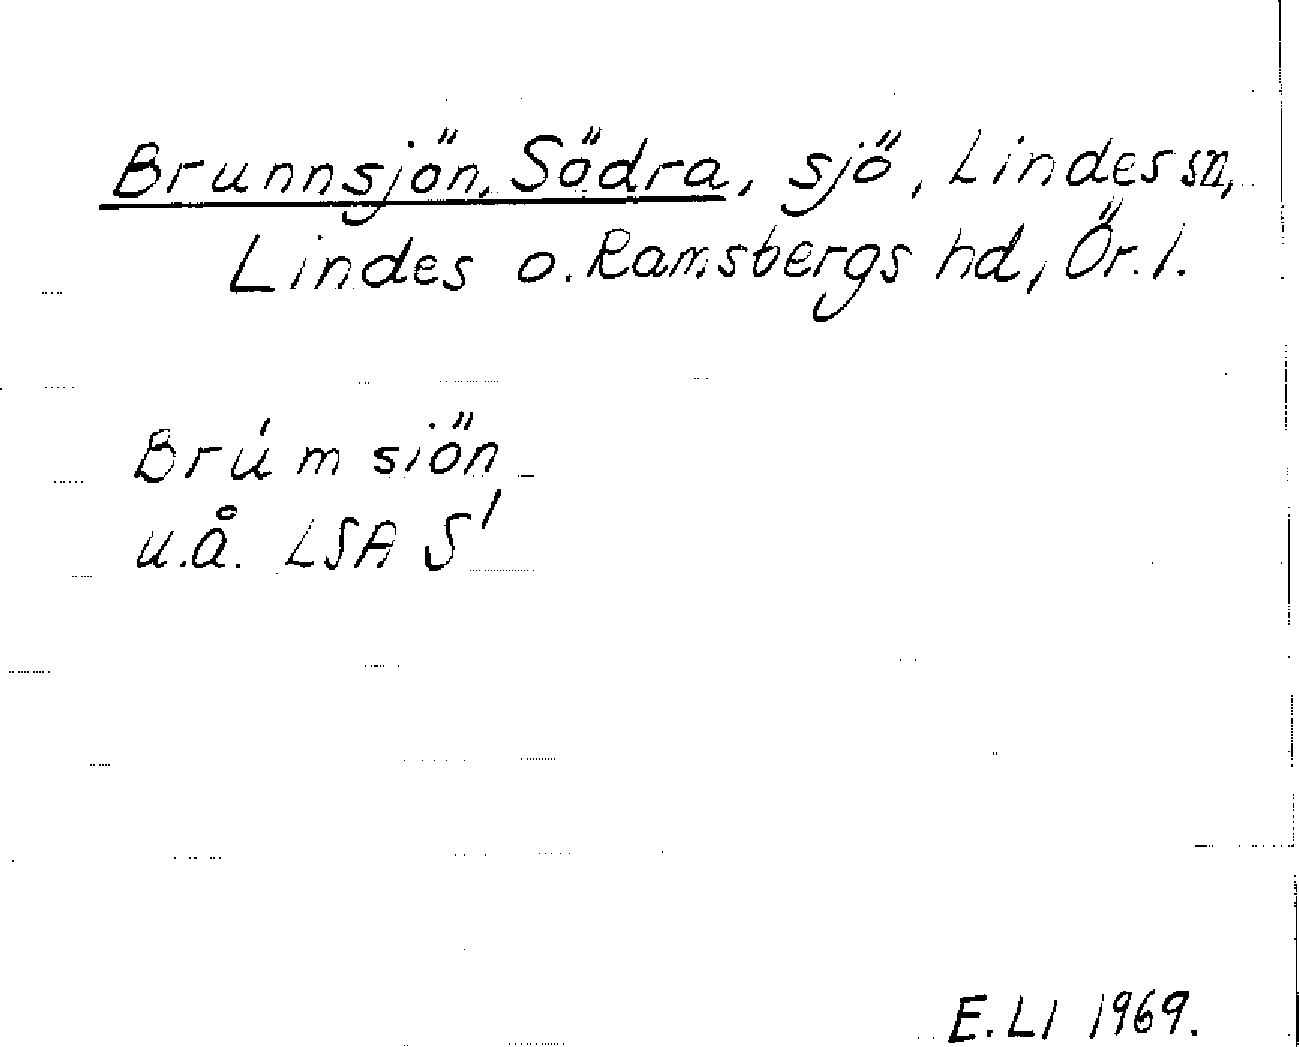 Brunnsjön, Södra, sjö, Lindes sn,
Lindes o. Ramsbergs hd, Ör. l.
Brúmsiön
u.å. LSA S'
E.Ll 1969.